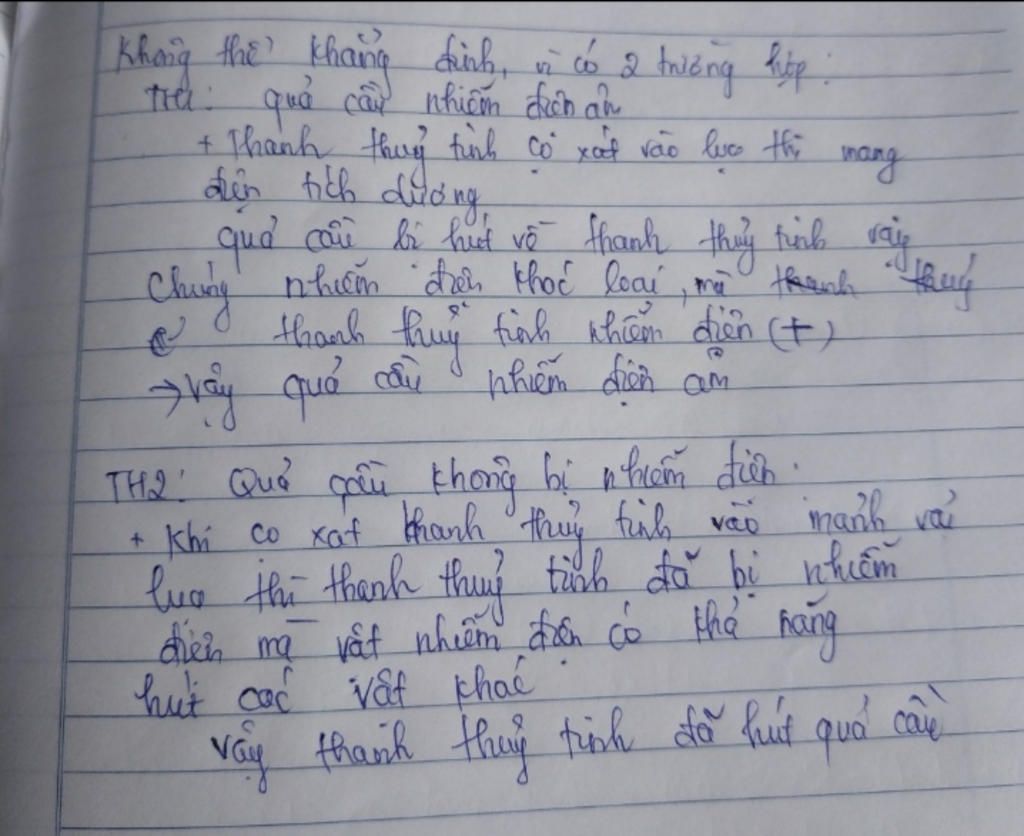 Không thể khẳng định, vì có 2 trường hợp:
TH1: quả cầu nhiễm điện âm
+ Thanh thuỷ tinh cọ xát vào lụa thì mang
điện tích dương
quả cầu bị hút về thanh thuỷ tinh vậy
Chúng nhiễm điện khác loại, mà thanh thuỷ
thanh thuỷ tinh nhiễm điện (+)
→ vậy quả cầu nhiễm điện âm
TH2: Quả cầu không bị nhiễm điện.
+ Khi cọ xát thanh thuỷ tinh vào mảnh vải
lụa thì thanh thuỷ tinh đã bị nhiễm
điện mà vật nhiễm điện có khả năng
hút các vật khác
vậy thanh thuỷ tinh đã hút quả cầu